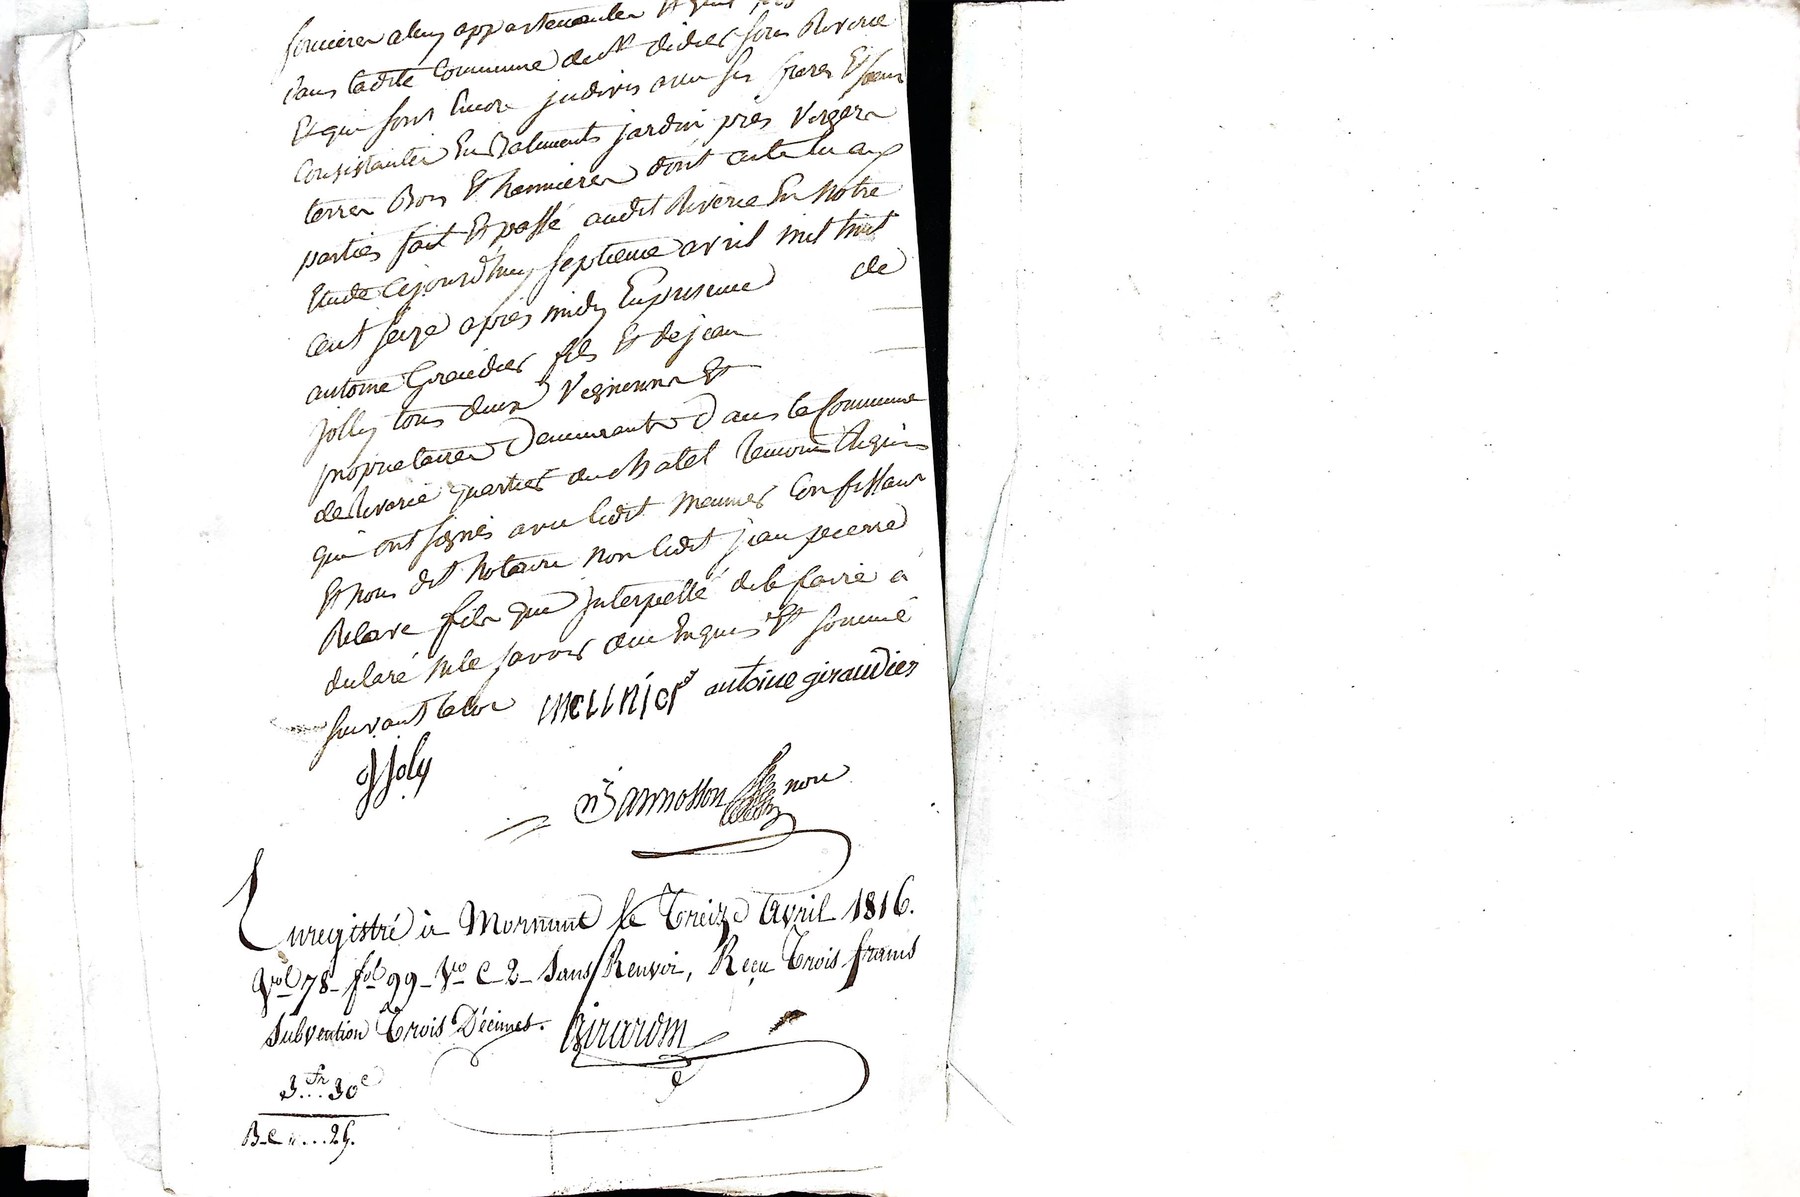 foncieres a luy appartenantes et qui
dans ladite Commune de St didier sous Riverie
Et qui sont Encore indivis avec ses freres Et sœur
Consistantes En Batiments jardin près Vergers
terres Bois Et hermieres dont acte lu aux
parties fait Et passé audit Riverie En Notre
Etude Cejourd'huy septieme avril mil huit
cent seize après midy En presence de
antoine Giraudier fils Et de jean
jolly tous deux Vignerons Et
proprietaires Demeurants Dans la Commune
de Riverie quartier du chatel Temoins Requis
qui ont signés avec ledit Meunier Confessant
Et Nous dit Notaire Non ledit jean pierre
Relave fils qui interpellé de le faire a
declaré ne le savoir due Enquis Et sommé
suivant la loi meunier antoine giraudier
JJoly
Bannosson nore
Enregistré à Mornant le Treize Avril 1816.
Vol 78 - fol 99 - Vo C 2 - Sans Renvoi, Reçu Trois francs
Subvention Trois Décimes. Girardin
3 fr .. 30 c
B-e .. ... 25.